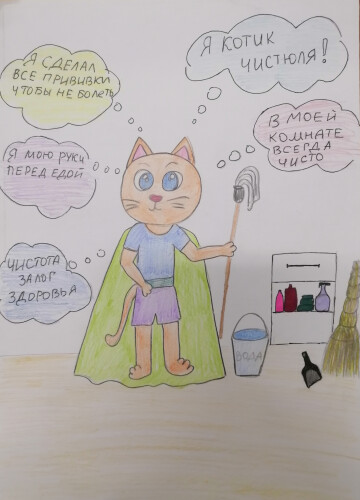 Я СДЕЛАЛ
ВСЕ ПРИВИВКИ
ЧТОБЫ НЕ БОЛЕТЬ
Я КОТИК
ЧИСТЮЛЯ!
Я МОЮ РУКИ
ПЕРЕД ЕДОЙ
В МОЕЙ
КОМНАТЕ
ВСЕГДА
ЧИСТО
ЧИСТОТА
ЗАЛОГ
ЗДОРОВЬЯ
ВОДА